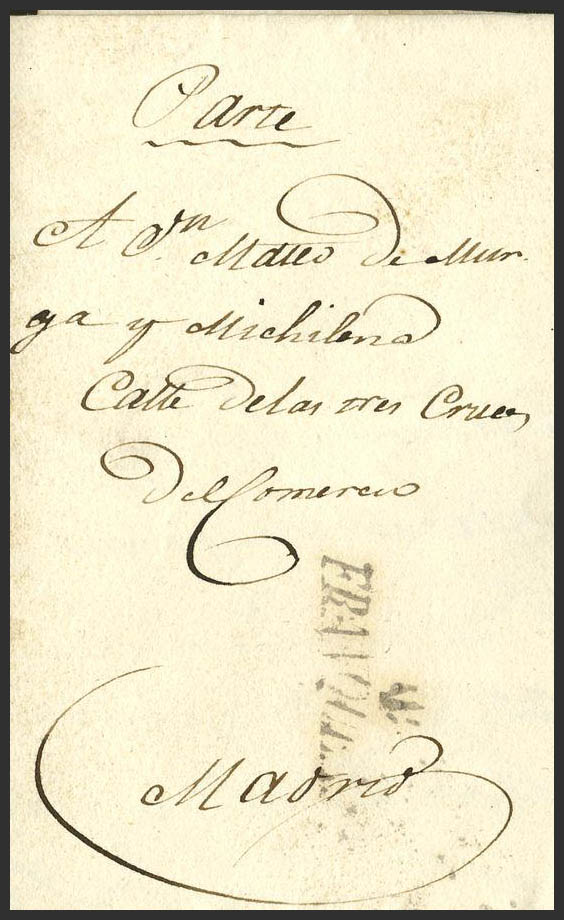 Parte
A Dn. Mateo de Mur-
ga y Michilena
Calle de las tres Cruces
Del Comercio
FRANQUE
Madrid